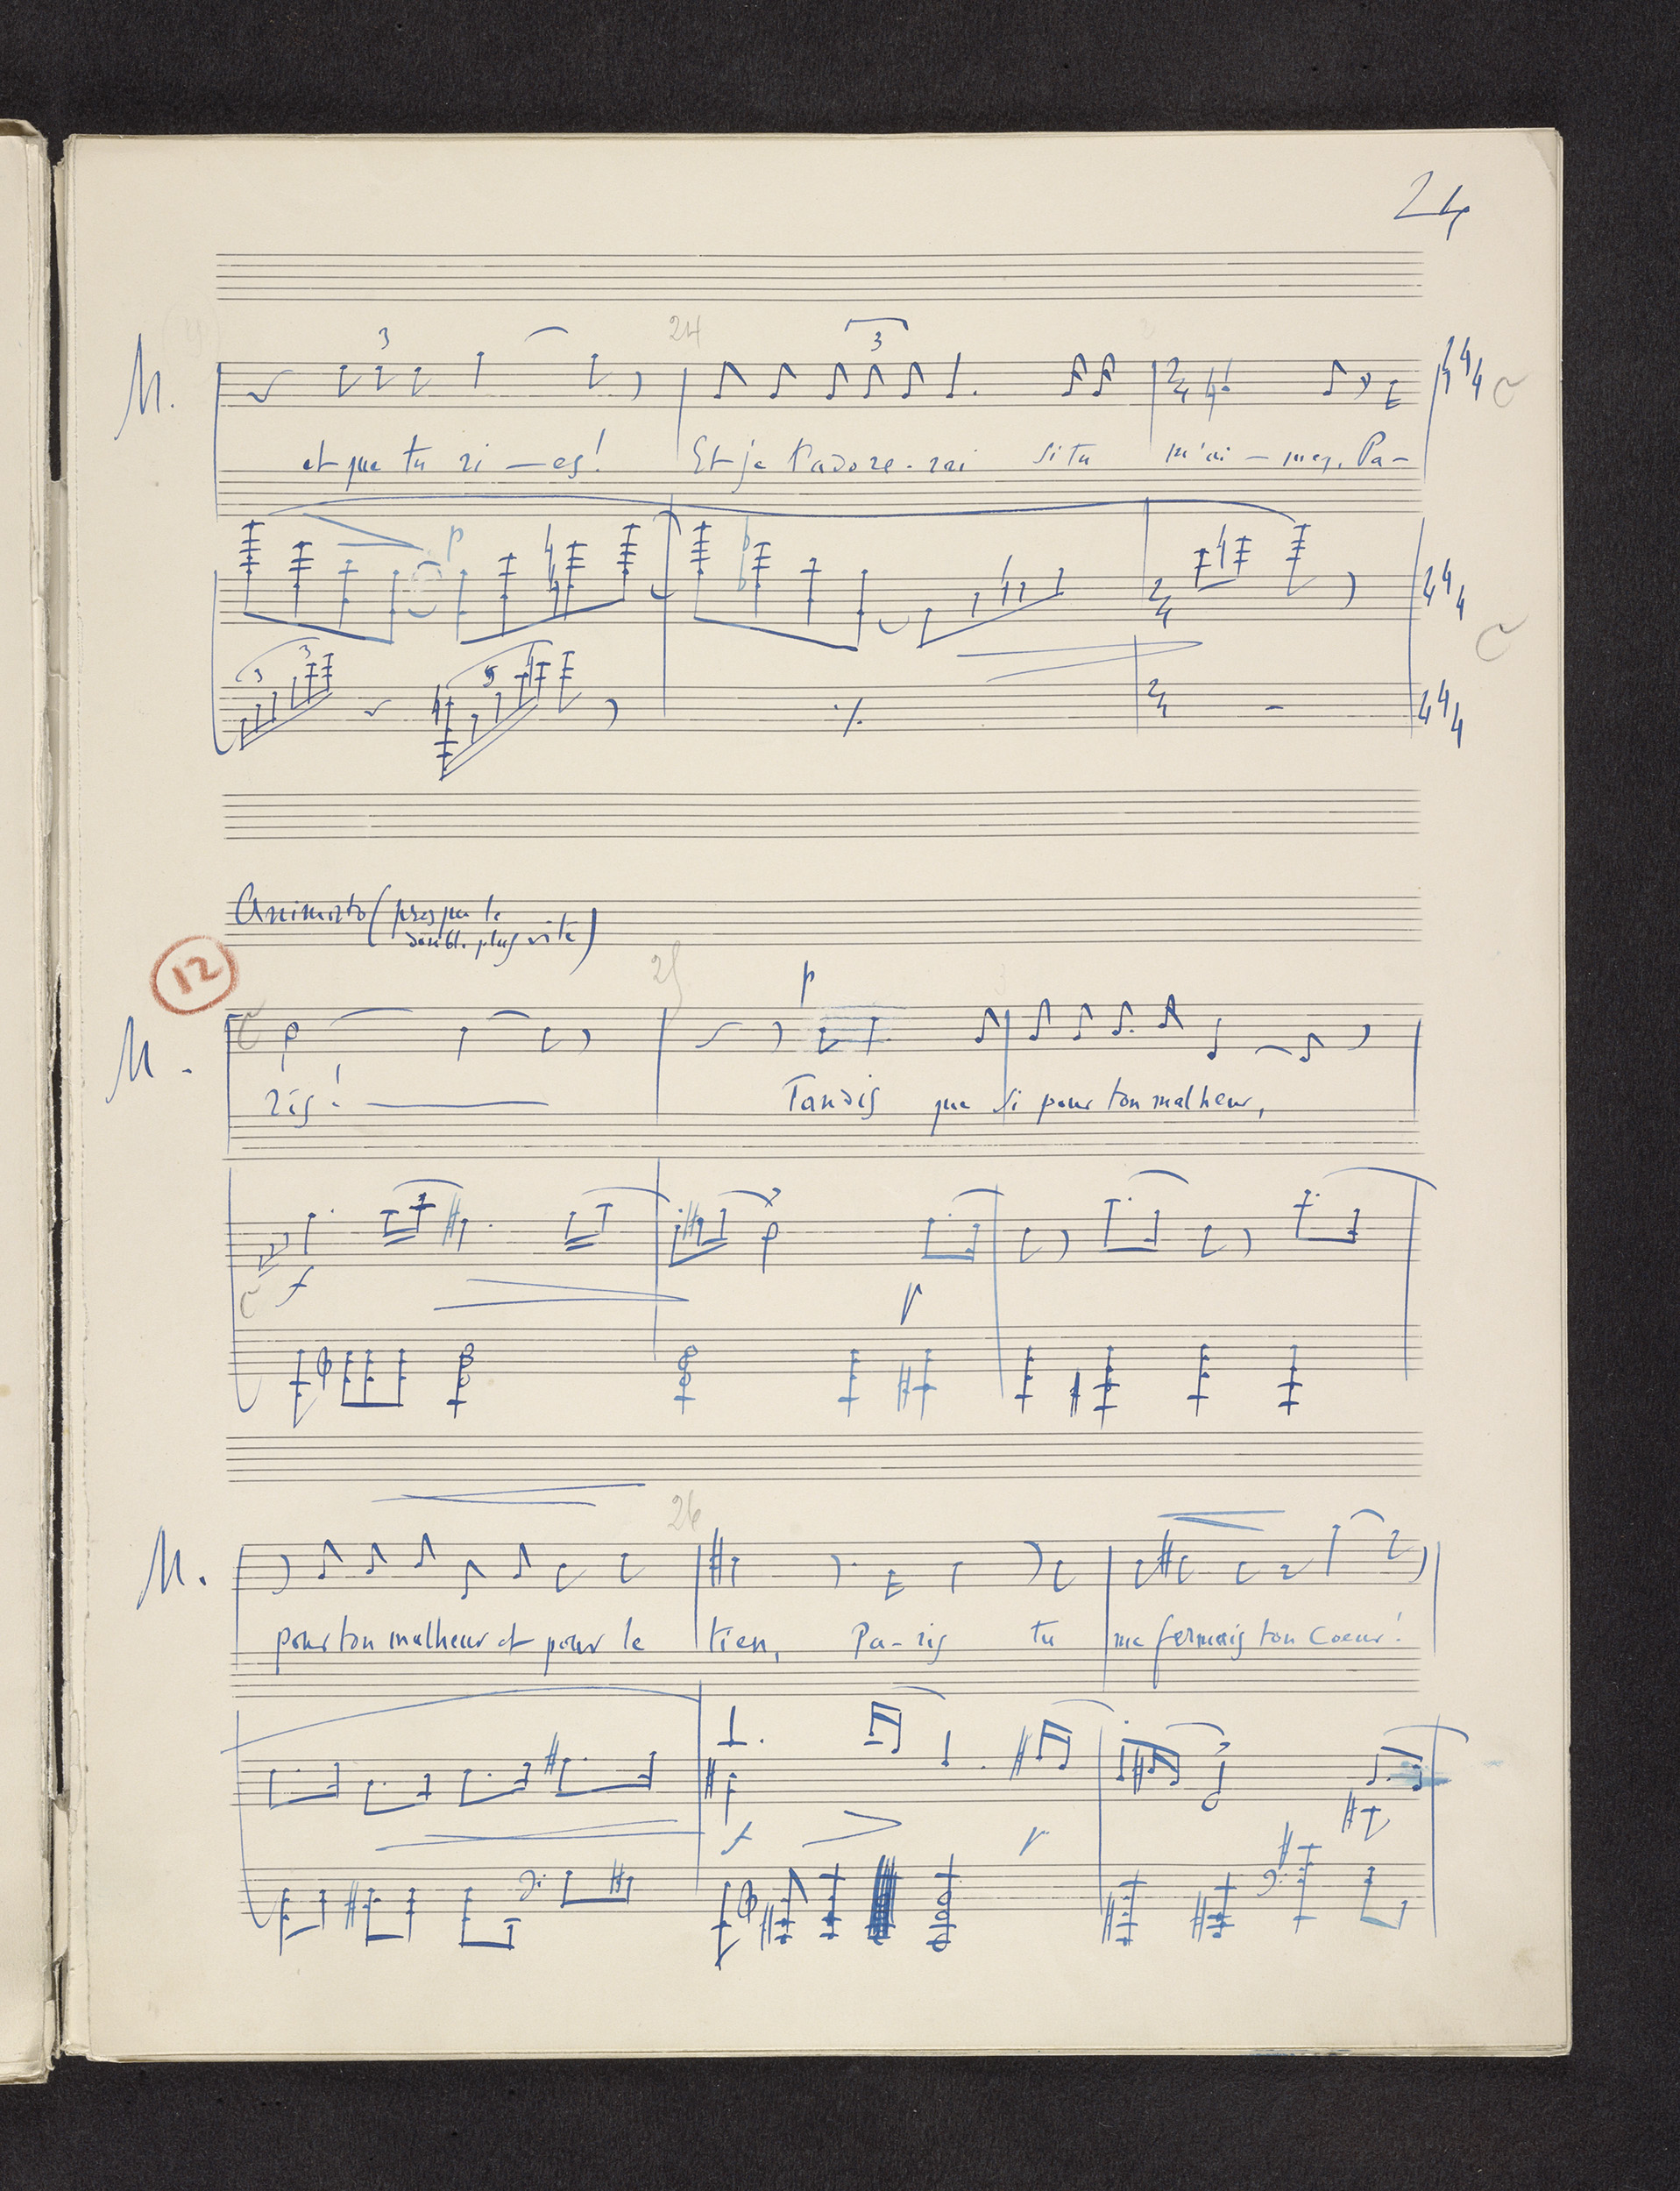 24
24
M.
et que tu ri — es! Et je t'adore-rai si tu m'ai - mes. Pa-
Animato (presque le
double plus vite)
12
25
M.
ris! Tandis que si pour ton malheur,
26
M.
pour ton malheur et pour le tien, Pa-ris tu me fermais ton coeur!